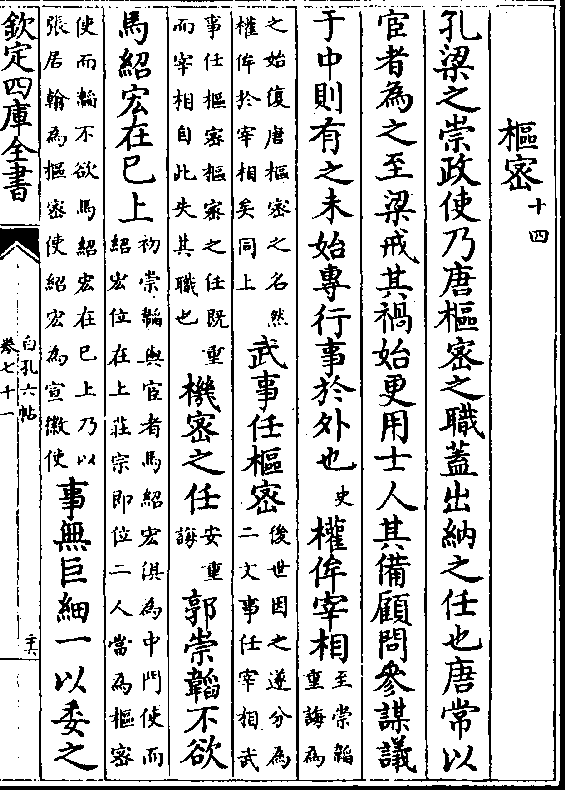 樞密十四
孔梁之崇政使乃唐樞密之職蓋出納之任也唐常以
宦者為之至梁戒其禍始更用士人其備顧問參謀議
于中則有之未始專行事於外也史權侔宰相至崇韜重誨為
之始復唐樞密之名然權侔於宰相矣同上武事任樞密後世因之遂分為二文事任宰相武
事任樞密樞密之任既重而宰相自此失其職也機密之任安重誨郭崇韜不欲
馬紹宏在巳上初崇韜與宦者馬紹宏俱為中門使而紹宏位在上莊宗即位二人當為樞密
使而韜不欲馬紹宏在巳上乃以張居翰為樞密使紹宏為宣徽使事無巨細一以委之
欽定四庫全書
白孔六帖
卷七十一